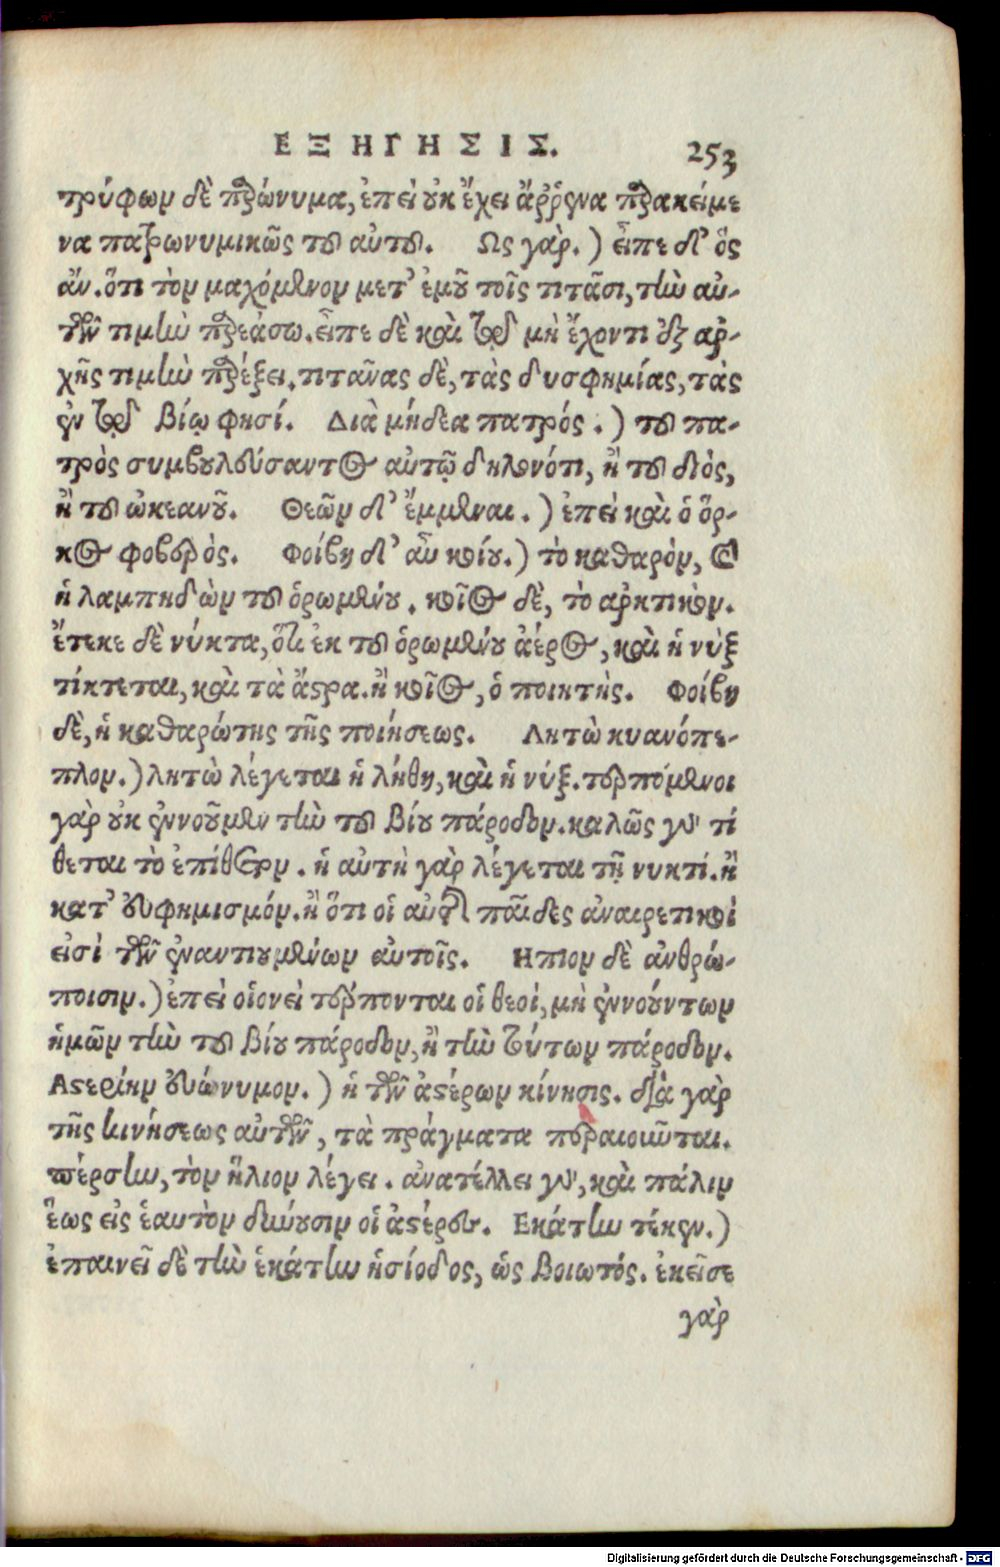 ΕΞΗΓΗΣΙΣ. 253
τρύφων δὲ παρώνυμα, ἐπεὶ οὐκ ἔχει ἄῤῥενα παρακείμε
να πατρωνυμικῶς τοῦ αὐτοῦ. Ως γὰρ.) εἶπε δ' ὅς
ἄν. ὅτι τὸν μαχόμενον μετ' ἐμοῦ τοῖς τιτᾶσι, τὴν αὐ-
τῶν τιμὴν παρεάσω. εἶπε δὲ καὶ τῷ μὴ ἔχοντι ἐξ αρ-
χῆς τιμὴν παρέξει. τιτᾶνας δὲ, τὰς δυσφημίας, τὰς
ἐν τῷ βίῳ φησί. Διὰ μήδεα πατρός.) τοῦ πα-
τρὸς συμβουλεύσαντος αὐτῷ δηλονότι, ἢ τοῦ διὸς,
ἢ τοῦ ὠκεανοῦ. Θεῶν δ' ἔμμεναι.) ἐπεὶ καὶ ὁ ὅρ-
κος φοβερὸς. Φοίβη δ' αὖ κοίου.) τὸ καθαρὸν, καὶ
ἡ λαμπηδὼν τοῦ ὁρωμένου. κοῖος δὲ, τὸ αρκτικὸν.
ἔτεκε δὲ νύκτα, ὅτι ἐκ τοῦ ὁρωμένου ἀέρος, καὶ ἡ νὺξ
τίκτεται, καὶ τὰ ἄστρα. ἢ κοῖος, ὁ ποιητὴς. Φοίβη
δὲ, ἡ καθαρώτης τῆς ποιήσεως. Λητὼ κυανόπε-
πλον.) λητὼ λέγεται ἡ λήθη, καὶ ἡ νύξ. τερπόμενοι
γὰρ οὐκ ἐννοῦμεν τὴν τοῦ βίου πάροδον. καλῶς γοῦν τί
θεται τὸ ἐπίθετον. ἡ αὐτὴ γὰρ λέγεται τῇ νυκτί. ἢ
κατ' εὐφημισμόν. ἢ ὅτι οἱ αὐτῆς παῖδες ἀναιρετικοί
εἰσὶ τῶν ἐναντιουμένων αὐτοῖς. Ηπιον δὲ ἀνθρώ-
ποισιν.) ἐπεὶ οἱονεὶ τέρπονται οἱ θεοὶ, μὴ ἐννοούντων
ἡμῶν τὴν τοῦ βίου πάροδον, ἢ τὴν τούτων πάροδον.
Αστερίην εὐώνυμον.) ἡ τῶν ἀστέρων κίνησις. διὰ γὰρ
τῆς κινήσεως αὐτῶν, τὰ πράγματα περαιοῦνται.
πέρσην, τὸν ἥλιον λέγει. ἀνατέλλει γοῦν, καὶ πάλιν
ἕως εἰς ἑαυτὸν δύνουσιν οἱ ἀστέρες. Εκάτην τέκεν.)
ἐπαινεῖ δὲ τὴν ἑκάτην ἡσίοδος, ὡς βοιωτός. ἐκεῖσε
γὰρ
Digitalisierung gefördert durch die Deutsche Forschungsgemeinschaft - DFG